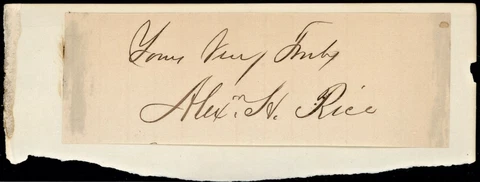 Yours Very Truly
Alexr. H. Rice